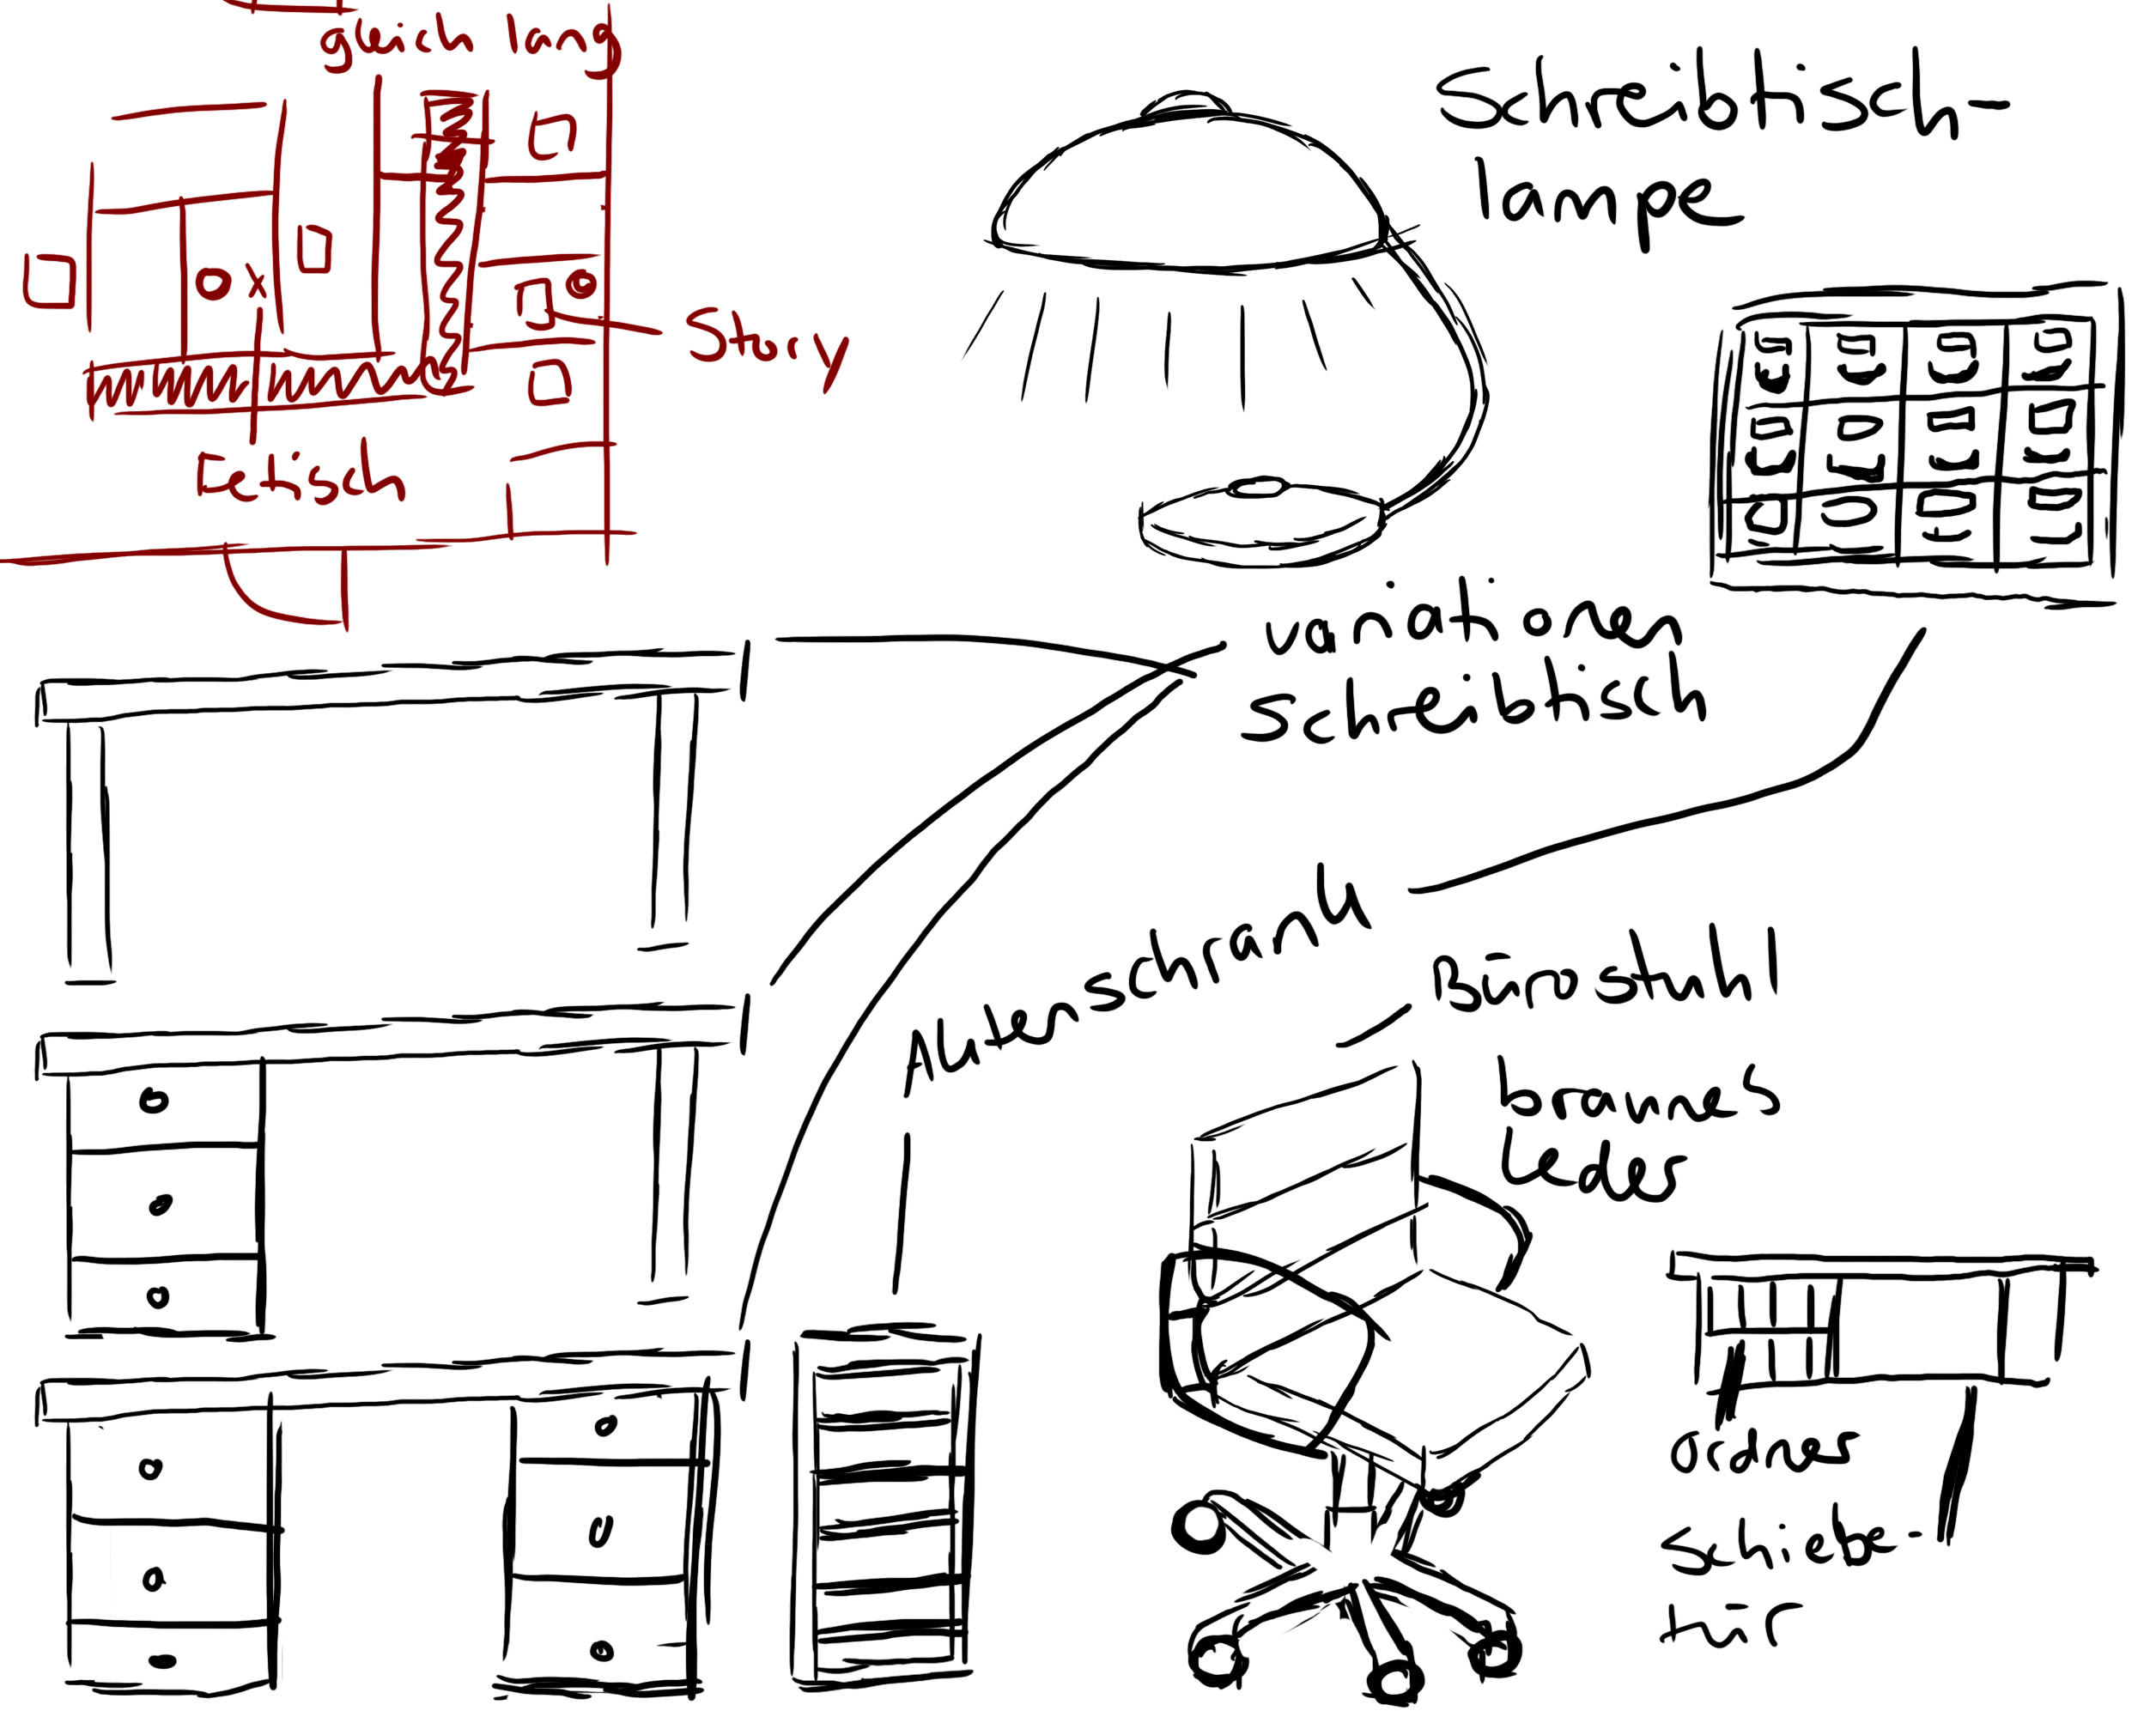 gleich lang
Story
Fetisch
Schreibtisch-
lampe
variationen
schreibtisch
Aktenschrank
Bürostuhl
braunes
Leder
ordner
schiebe-
tür